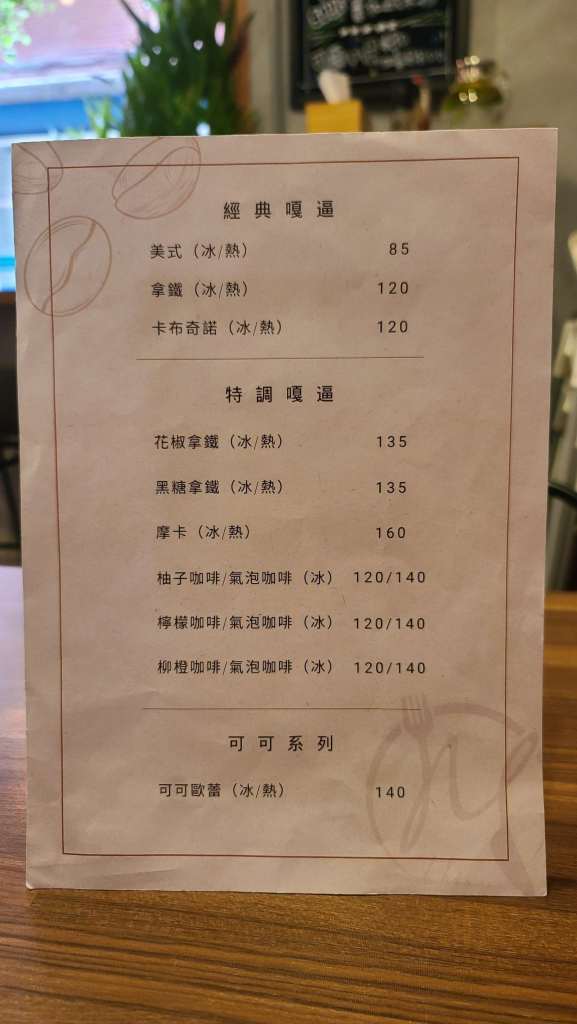 經典嘎逼
美式（冰/熱） 85
拿鐵（冰/熱） 120
卡布奇諾（冰/熱） 120
特調嘎逼
花椒拿鐵（冰/熱） 135
黑糖拿鐵（冰/熱） 135
摩卡（冰/熱） 160
柚子咖啡/氣泡咖啡（冰） 120/140
檸檬咖啡/氣泡咖啡（冰） 120/140
柳橙咖啡/氣泡咖啡（冰） 120/140
可可系列
可可歐蕾（冰/熱） 140